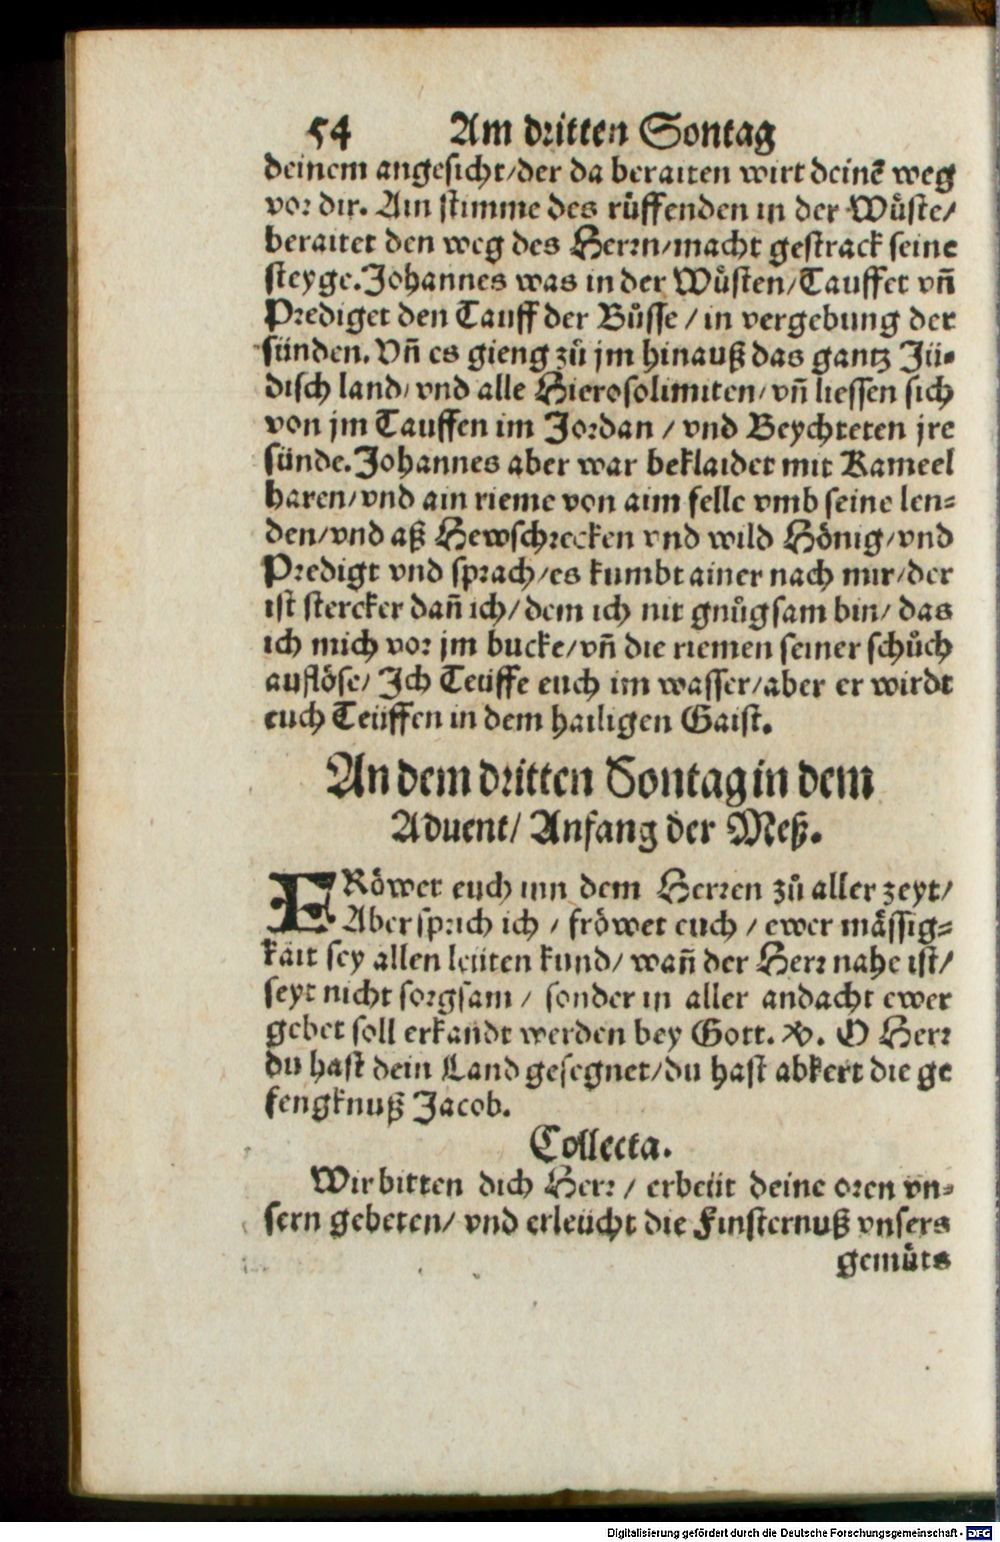 54 Am dritten Sontag
deinem angesicht/der da beraiten wirt deinē weg
vor dir. Ain stimme des růffenden in der Wůste/
beraitet den weg des Herrn/macht gestrack seine
steyge. Johannes was in der Wůsten/Tauffet vn̄
Prediget den Tauff der Bůsse / in vergebung der
sünden. Vn̄ es gieng zů jm hinauß das gantz Jü-
disch land/ vnd alle Hierosolimiten/ vn̄ liessen sich
von jm Tauffen im Jordan / vnd Beychteten jre
sünde. Johannes aber war beklaidet mit Kameel
haren/vnd ain rieme von aim felle vmb seine len=
den/vnd aß Hewschrecken vnd wild Hönig/vnd
Predigt vnd sprach/es kumbt ainer nach mir/der
ist stercker dan̄ ich/ dem ich nit gnůgsam bin/ das
ich mich vor jm bucke/vn̄ die riemen seiner schůch
auflöse/ Ich Teüffe euch im wasser/aber er wirdt
euch Teüffen in dem hailigen Gaist.
An dem dritten Sontag in dem
Aduent/ Anfang der Meß.
FRöwet euch inn dem Herren zů aller zeyt/
Aber sprich ich / fröwet euch / ewer mässig=
kait sey allen leüten kund/ wan̄ der Herr nahe ist/
seyt nicht sorgsam / sonder in aller andacht ewer
gebet soll erkandt werden bey Gott. ℣. O Herr
du hast dein Land gesegnet/du hast abkert die ge
fengknuß Jacob.
Collecta.
Wir bitten dich Herr / erbeüt deine oren vn-
sern gebeten/ vnd erleücht die Finsternuß vnsers
gemůts
Digitalisierung gefördert durch die Deutsche Forschungsgemeinschaft - DFG